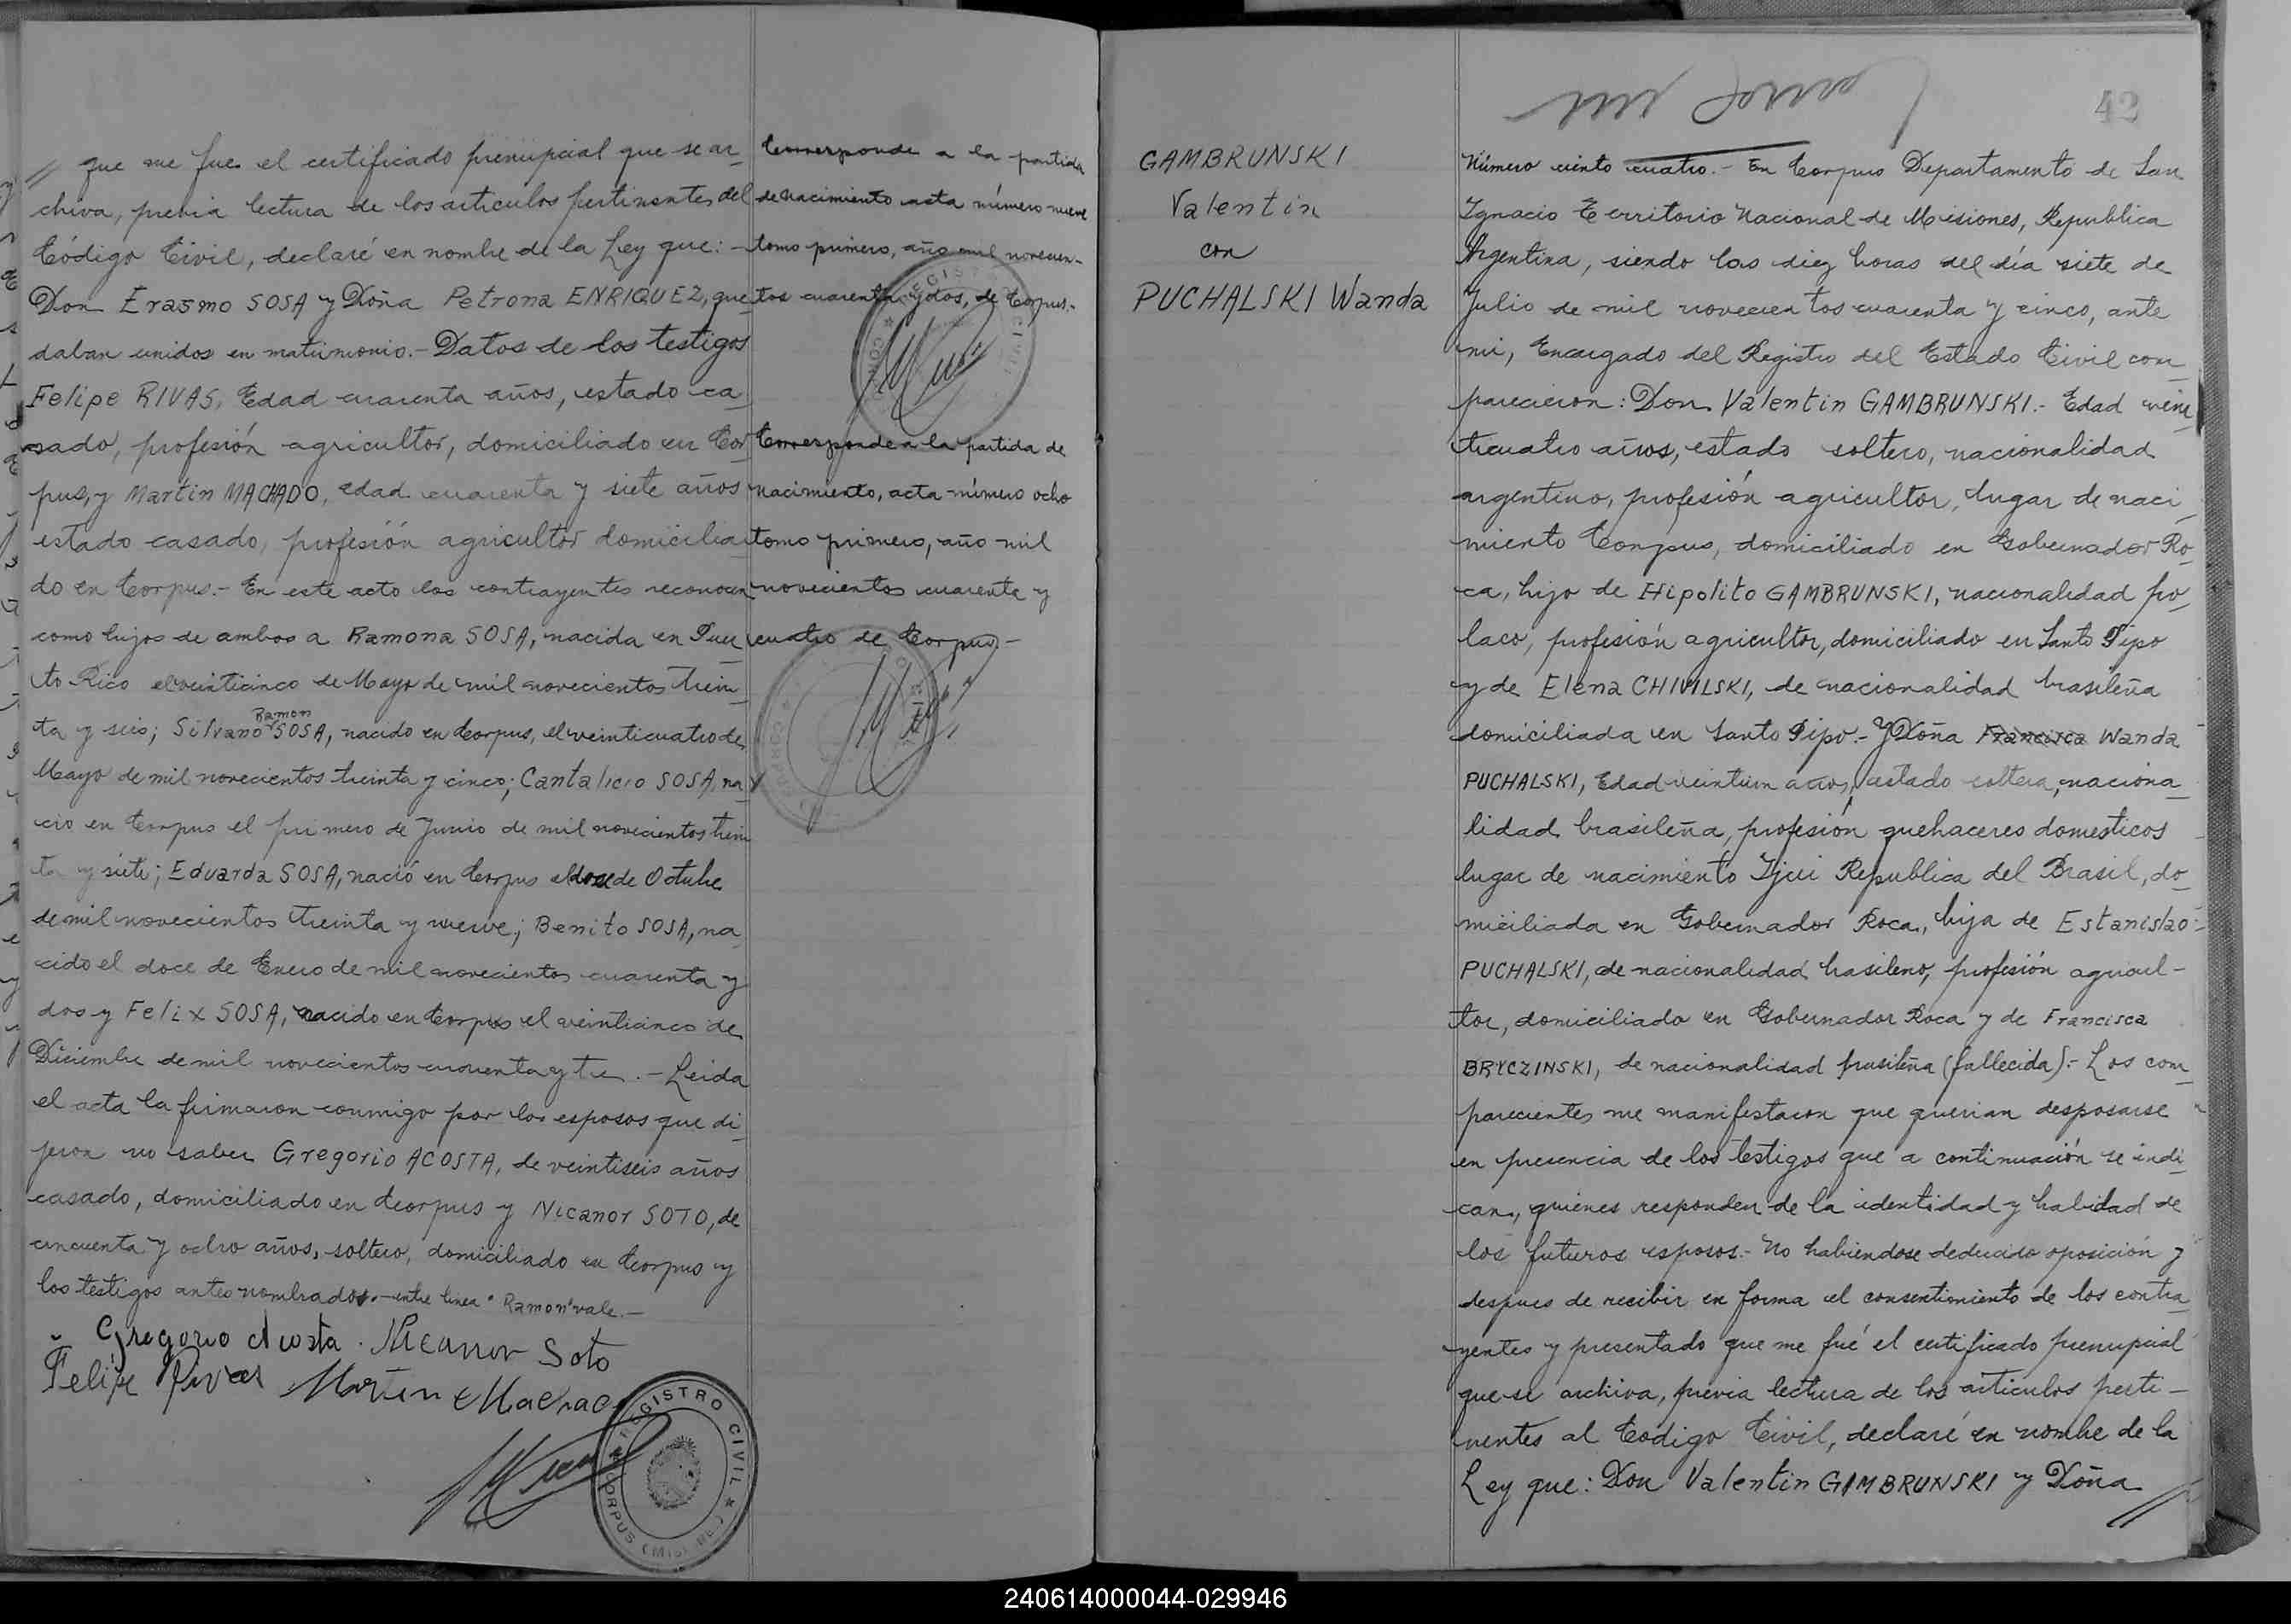 que me fue el certificado prenupcial que se ar_
chiva, previa lectura de los articulos pertinentes del
Código Civil, declaré en nombre de la Ley que: -
Don Erasmo SOSA y Doña Petrona ENRIQUEZ, que
daban unidos en matrimonio.- Datos de los testigos
Felipe RIVAS, Edad cuarenta años, estado ca_
sado, profesión agricultor, domiciliado en Cor_
pus, y Martin MACHADO, edad cuarenta y siete años
estado casado, profesión agricultor domicilia
do en Corpus.- En este acto los contrayentes reconocen
como hijos de ambos a Ramona SOSA, nacida en Puer_
to Rico el veinticinco de Mayo de mil novecientos trein_
Ramon
ta y seis; Silvano SOSA, nacido en Corpus, el veinticuatro de
Mayo de mil novecientos treinta y cinco; Cantalicio SOSA, na_
cio en Corpus el primero de Junio de mil novecientos trein
ta y siete; Eduarda SOSA, nació en Corpus el doce de Octubre
de mil novecientos treinta y nueve; Benito SOSA, na_
cido el doce de Enero de mil novecientos cuarenta y
dos y Felix SOSA, nacido en Corpus el veinticinco de
Diciembre de mil novecientos cuarenta y tres.- Leida
el acta la firmaron conmigo por los esposos que di_
jeron no saber Gregorio ACOSTA, de veintiseis años
casado, domiciliado en Corpus y Nicanor SOTO, de
cincuenta y ocho años, soltero, domiciliado en Corpus y
los testigos antes nombrados.- entre linea "Ramon" vale.-
Gregorio Acosta. Nicanor Soto
Felipe Rivas Martin Machado
REGISTRO CIVIL
CORPUS (Mis)
Corresponde a la partida
de nacimiento acta número nueve
tomo primero, año mil novecien-
tos cuarenta y dos, de Corpus.-
Corresponde a la partida de
nacimiento, acta número ocho
tomo primero, año mil
novecientos cuarenta y
cuatro de Corpus.-
GAMBRUNSKI
Valentin
con
PUCHALSKI Wanda
42
Número ciento cuatro.- En Corpus Departamento de San
Ignacio Territorio Nacional de Misiones, Republica
Argentina, siendo las diez horas del día siete de
Julio de mil novecientos cuarenta y cinco, ante
mi, Encargado del Registro del Estado Civil com_
parecieron: Don Valentin GAMBRUNSKI.- Edad vein_
ticuatro años, estado soltero, nacionalidad
argentino, profesión agricultor, lugar de naci_
miento Corpus, domiciliado en Gobernador Ro_
ca, hijo de Hipolito GAMBRUNSKI, nacionalidad po_
laco, profesión agricultor, domiciliado en Santo Pipo
y de Elena CHIVILSKI, de nacionalidad brasileña
domiciliada en Santo Pipo.- Y Doña Francisca Wanda
PUCHALSKI, Edad veintiun años, estado soltera, naciona_
lidad brasileña, profesión quehaceres domesticos
lugar de nacimiento Ijui Republica del Brasil, do_
miciliada en Gobernador Roca, hija de Estanislao
PUCHALSKI, de nacionalidad brasileno, profesión agricul-
tor, domiciliado en Gobernador Roca y de Francisca
BRYCZINSKI, de nacionalidad brasileña (fallecida).- Los com_
parecientes me manifestaron que querian desposarse
en presencia de los testigos que a continuación se indi_
can, quienes responden de la identidad y habilidad de
los futuros esposos.- No habiendose deducido oposición y
despues de recibir en forma el consentimiento de los contra_
yentes y presentado que me fué el certificado prenupcial
que se archiva, previa lectura de los articulos perti-
nentes al Código Civil, declaré en nombre de la
Ley que: Don Valentin GAMBRUNSKI y Doña
240614000044-029946